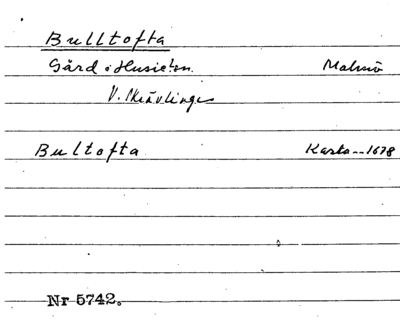 Bulltofta
Gård i Husie sn. Malmö
V. Skrävlinge
Bultofta Karta 1678
Nr 5742.